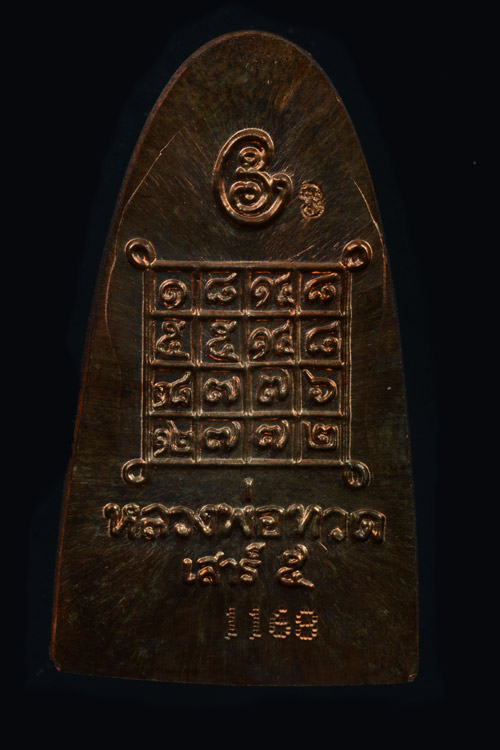 ๑ ๘ ๑๕ ๘
๕ ๕ ๑๔ ๘
๑๘ ๗ ๗ ๖
๑๒ ๗ ๗ ๒
หลวงพ่อทวด
เสาร์ ๕
1168